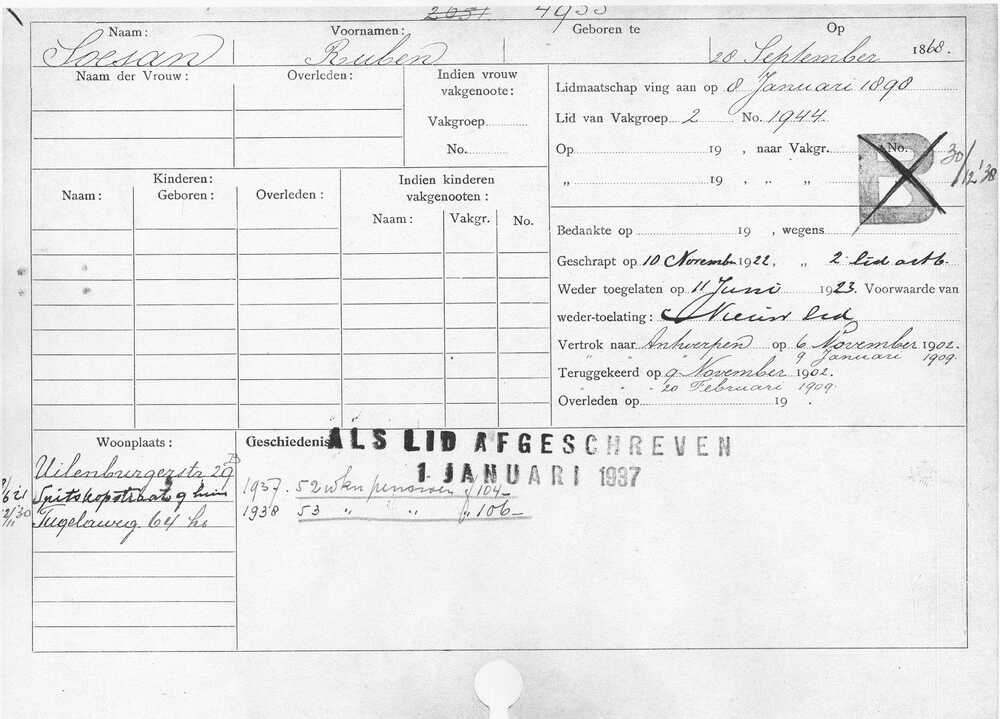 2051 4955
Naam: Voornamen: Geboren te Op
Soesan Ruben 28 September 1868.
Naam der Vrouw: Overleden: Indien vrouw vakgenoote:
Vakgroep
No.
Lidmaatschap ving aan op 8 Januari 1898
Lid van Vakgroep 2 No. 1944
Op 19 , naar Vakgr. No.
„ 19 , „ „
B
30/12 '38
Kinderen:
Naam: Geboren: Overleden:
Indien kinderen vakgenooten:
Naam: Vakgr. No.
Bedankte op 19 , wegens
Geschrapt op 10 November 1922, „ 2 lid art 6.
Weder toegelaten op 11 Juni 1923. Voorwaarde van
weder-toelating: Nieuw lid
Vertrok naar Antwerpen op 6 November 1902.
„ „ „ 9 Januari 1909.
Teruggekeerd op 9 November 1902.
„ „ 20 Februari 1909.
Overleden op 19 .
Woonplaats:
Uilenburgerstr. 29
Spitskopstraat 9 huis
Tugelaweg 64 hs
Geschiedenis
ALS LID AFGESCHREVEN
1 JANUARI 1937
1937. 52 wkn pensioen f 104-
1938 53 „ „ „ 106-